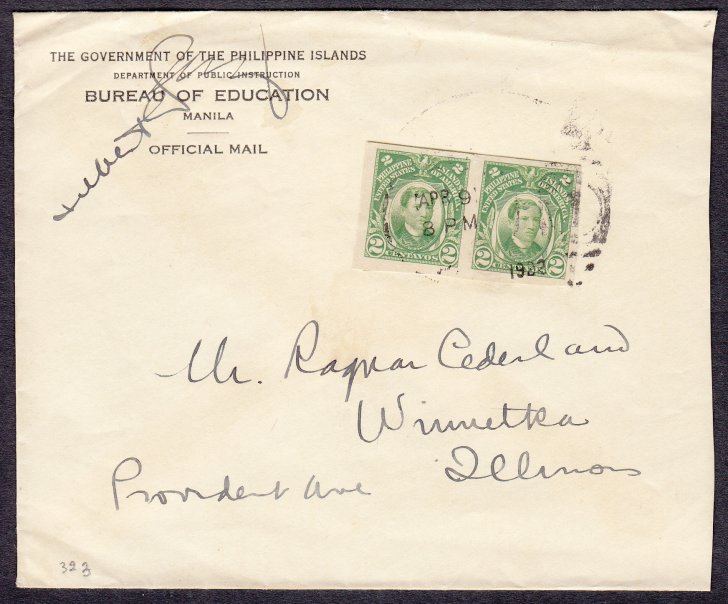 THE GOVERNMENT OF THE PHILIPPINE ISLANDS
DEPARTMENT OF PUBLIC INSTRUCTION
BUREAU OF EDUCATION
MANILA
OFFICIAL MAIL
2 2
PHILIPPINE ISLANDS
UNITED STATES OF AMERICA
2 CENTAVOS 2
2 2
PHILIPPINE ISLANDS
UNITED STATES OF AMERICA
2 2
APR 9
8 PM
Mr. Ragnar Cederlund
Winnetka
Illinois
Provident Ave
323